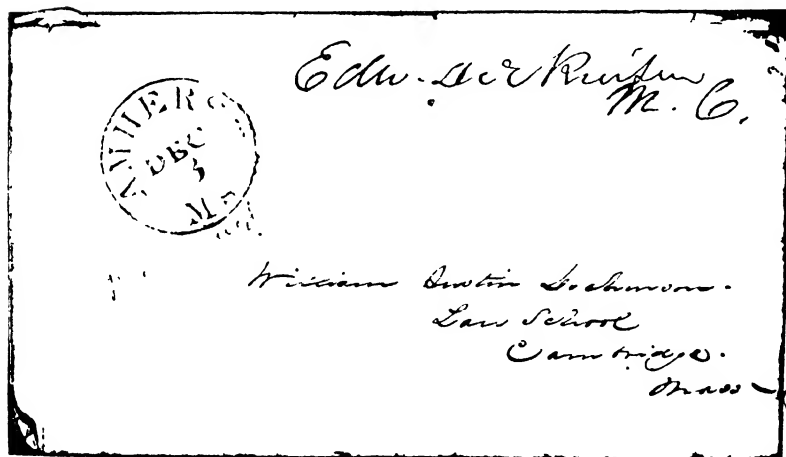 Edw. Dickinson
M. C.
AMHERST
DEC
3
Ms
William Austin Dickinson.
Law School
Cambridge.
Mass